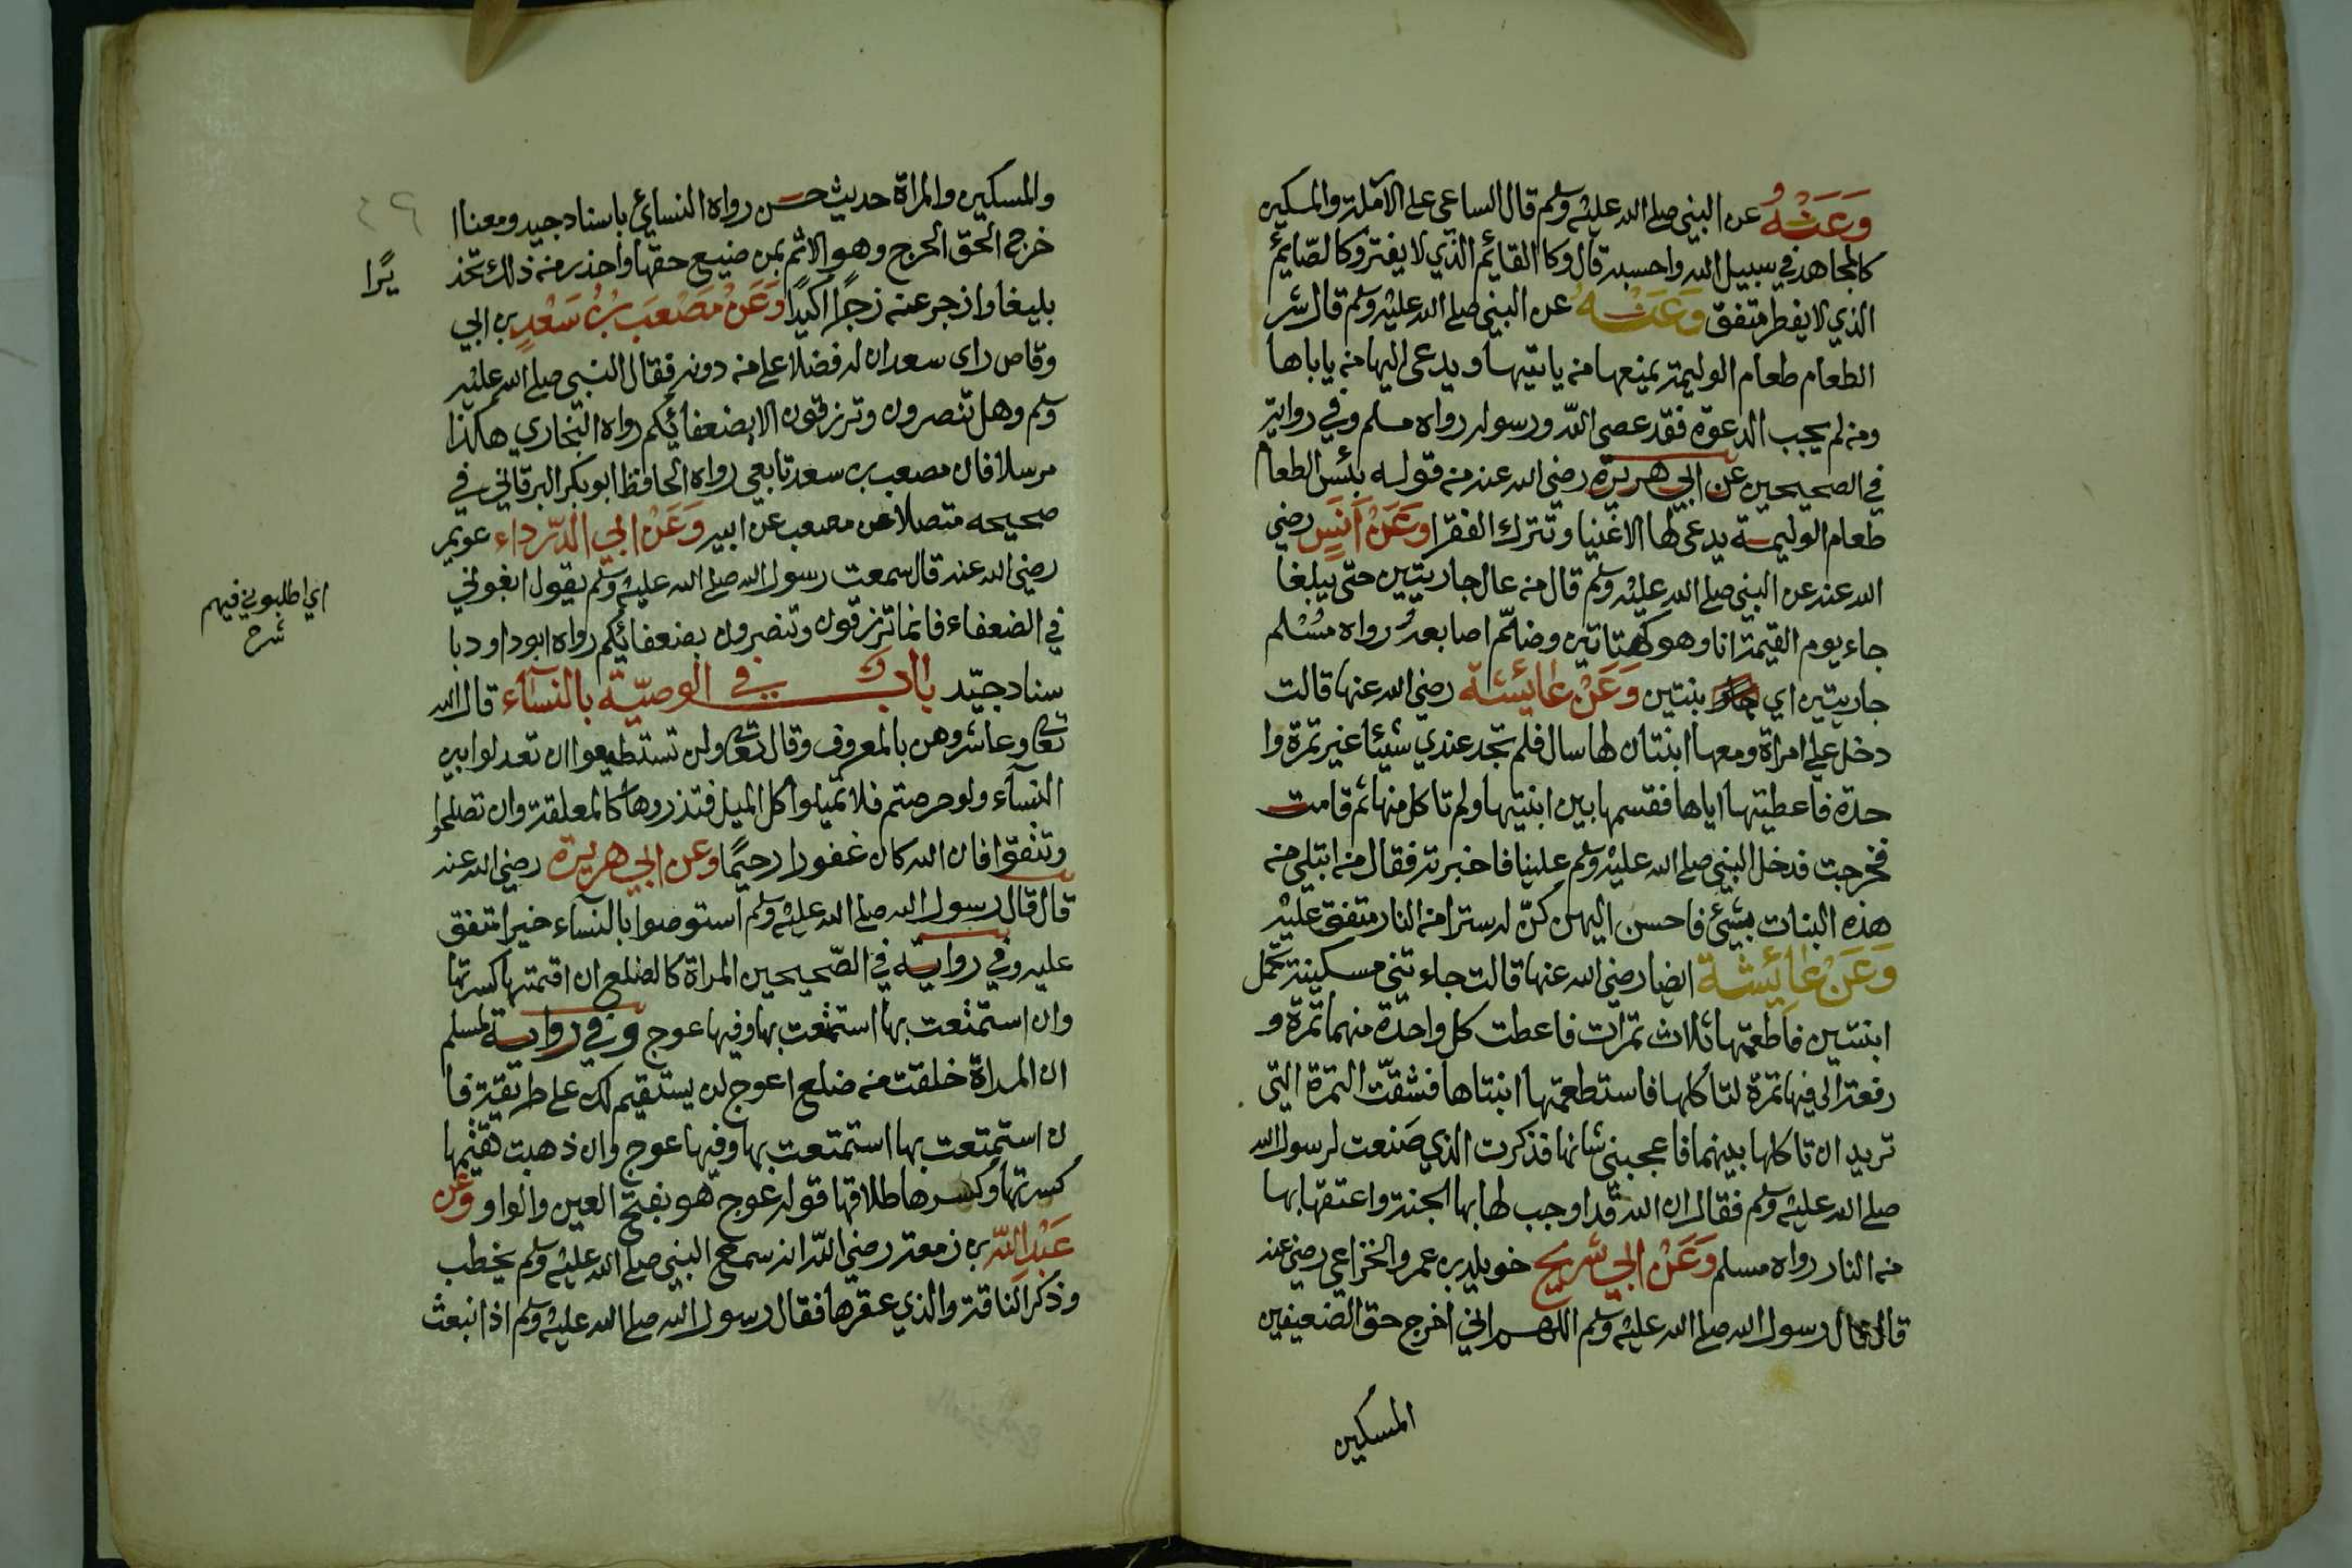 وَعَنْهُ عن النبي صلى الله عليه وسلم قال الساعي على الارملة والمسكين
كالمجاهد في سبيل الله واحسبه قال وكا القائم الذي لا يفتر وكالصّايم
الذي لا يفطر متفق وَعَنْهُ عن النبي صلى الله عليه وسلم قال شر
الطعام طعام الوليمة يمنعها من ياتيها ويدعى اليها من ياباها
ومن لم يجب الدعوة فقد عصى الله ورسوله رواه مسلم وفي رواية
في الصحيحين عن ابي هريرة رضي الله عنه من قوله بئس الطعام
طعام الوليمة يدعى لها الاغنيا وتترك الفقرا وَعَنْ اَنَسٍ رضي
الله عنه عن النبي صلى الله عليه وسلم قال من عال جاريتين حتى يبلغا
جاء يوم القيمة انا وهو كهتاتين وضمّ اصابعه رواه مسلم
جاريتين اي بنتين وَعَنْ عائشة رضي الله عنها قالت
دخل علي امراة ومعها ابنتان لها سال فلم تجد عندي شيئا غير تمرة وا
حدة فاعطيتها اياها فقسمها بين ابنتيها ولم تاكل منها ثم قامت
فخرجت فدخل النبي صلى الله عليه وسلم علينا فاخبرته فقال من ابتلي من
هذه البنات بشيء فاحسن اليهن كنّ له سترا من النار متفق عليه
وَعَنْ عائشة ايضا رضي الله عنها قالت جاءتني مسكينة تحمل
ابنتين فاطعمتها ثلاث تمرات فاعطت كل واحدة منهما تمرة و
رفعت الى فيها تمرة لتاكلها فاستطعمتها ابنتاها فشقّت التمرة التي
تريد ان تاكلها بينهما فاعجبني شانها فذكرت الذي صَنعت لرسول الله
صلى الله عليه وسلم فقال ان الله قد اوجب لها بها الجنة واعتقها بها
من النار رواه مسلم وَعَنْ ابي شريح خويلد بن عمرو الخزاعي رضي عنه
قال قال رسول الله صلى الله عليه وسلم اللهم اني اخرج حق الضعيفين
المسكين
والمسكين والمراة حديث حسن رواه النسائي باسناد جيد ومعنا ا
خرج الحق الحرج وهو الاثم بمن ضيع حقها واحذر من ذلك تحذ
يرًا
بليغا وازجر عنه زجرًا اكيدًا وَعَنْ مصْعَب بن سَعْدٍ بن ابي
وقاص راى سعد ان له فضلا على من دونه فقال النبي صلى الله عليه
وسلم وهل تنصرون وترزقون الا بضعفائكم رواه البخاري هكذا
مرسلا فان مصعب بن سعد تابعي رواه الحافظ ابو بكر البرقاني في
صحيحه متصلا عن مصعب عن ابيه وَعَنْ ابي الدّرداء عويمر
رضي الله عنه قال سمعت رسول الله صلى الله عليه وسلم يقول ابغوني
اي اطلبوني فيهم
شرح
في الضعفاء فانما ترزقون وتنصرون بضعفائكم رواه ابو داود با
سناد جيّد باب في الوصيّة بالنسآء قال الله
تعالى وعاشروهن بالمعروف وقال تعالى ولن تستطيعوا ان تعدلوا بين
النسآء ولو حرصتم فلا تميلوا كل الميل فتذروها كالمعلقة وان تصلحوا
وتتقوا فان الله كان غفورا رحيمًا وعن ابي هريرة رضي الله عنه
قال قال رسول الله صلى الله عليه وسلم استوصوا بالنسآء خيرا متفق
عليه وفي رواية في الصّحيحين المراة كالضلع ان اقمتها كسرتها
وان استمتعت بها استمتعت بها وفيها عوج وفي رواية لمسلم
ان المراة خلقت من ضلع اعوج لن يستقيم لك على طريقة فا
ن استمتعت بها استمتعت بها وفيها عوج وان ذهبت تقيمها
كسرتها وكسرها طلاقها قوله عوج هو بفتح العين والواو وَعَن
عَبْدِ الله بن زمعة رضي الله انه سمع النبي صلى الله عليه وسلم يخطب
وذكر الناقة والذي عقرها فقال رسول الله صلى الله عليه وسلم اذ انبعث